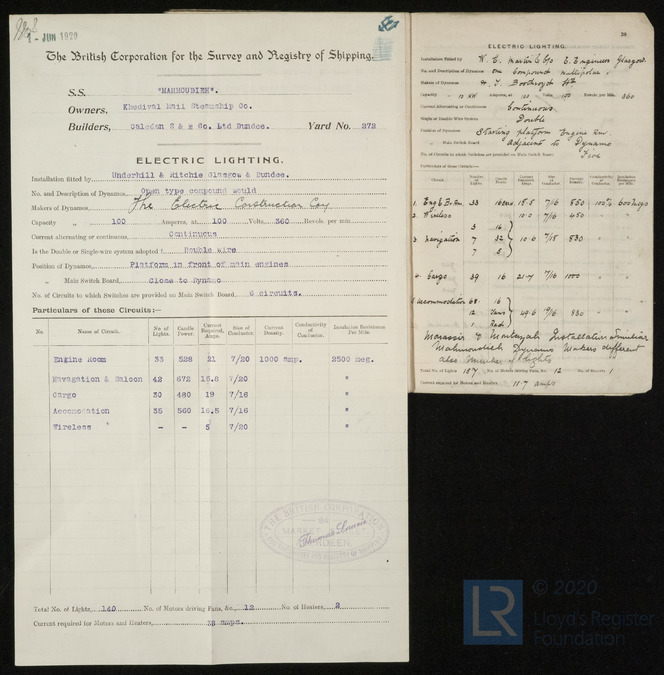 1 - JUN 1920
The British Corporation for the Survey and Registry of Shipping.
S.S. "MAHMOUDIEH".
Owners, Khedivial Mail Steamship Co.
Builders, Caledon S & E Co. Ltd Dundee. Yard No. 272
ELECTRIC LIGHTING.
Installation fitted by Underhill & Ritchie Glasgow & Dundee.
No. and Description of Dynamos, Open type compound would
Makers of Dynamos, The Electric Construction Coy
Capacity „ 100 Amperes, at 100 Volts, 360 Revols. per min.
Current alternating or continuous, Continuous
Is the Double or Single-wire system adopted? Double wire
Position of Dynamos, Platform in front of main engines
„ Main Switch Board, Close to Dynamo
No. of Circuits to which Switches are provided on Main Switch Board, 6 circuits.
Particulars of these Circuits:—
No. Name of Circuit. No. of Lights. Candle Power. Current Required, Amps. Size of Conductor. Current Density. Conductivity of Conductor. Insulation Resistance Per Mile.
Engine Room 33 528 21 7/20 1000 amp. 2500 meg.
Navagation & Saloon 42 672 16.8 7/20 "
Cargo 30 480 19 7/16 "
Accomodation 35 560 16.5 7/16 "
Wireless - - 5 7/20 "
THE BRITISH CORPORATION
MARKET
Total No. of Lights, 140 No. of Motors driving Fans, &c., 12 No. of Heaters, 2
Current required for Motors and Heaters, 38 amps.
39
ELECTRIC LIGHTING.
Installation fitted by W. C. Martin & Co E. Engineers Glasgow
No. and Description of Dynamos One Compound Multipolar
Makers of Dynamos
Capacity Amperes, at 100 Volts, Revols. per Min. 360
Current Alternating or Continuous Continuous
Single or Double Wire System Double
Position of Dynamos Starting platform Engine Rm.
„ Main Switch Board adjacent to Dynamo
No. of Circuits to which Switches are provided on Main Switch Board Five
Particulars of these Circuits:—
Circuit. Number of Lights. Candle Power. Current Required, Amps. Size of Conductor. Current Density. Conductivity of Conductor. Insulation Resistance Per Mile.
1. Eng & Bo Rm 33 16 18.5 7/16 850 100% 600 megs
2. Wireless 10.0 7/16 450 " "
3 Navigation 3 16
7 32 10.6 7/18 830 " "
7 5
4. Cargo 39 16 21.7 7/16 1000 " "
5 Accommodation 68 16
12 Fans 49.6 19/16 830 " "
1 Rad.
Installation similar
Mahmoudieh Dynamo Makers different
also Number of lights
Total No. of Lights 157 No. of Motors driving Fans, &c. 12 No. of Heaters 1
Current required for Motors and Heaters 11.7 amps
© 2020
LR
Lloyd's Register
Foundation